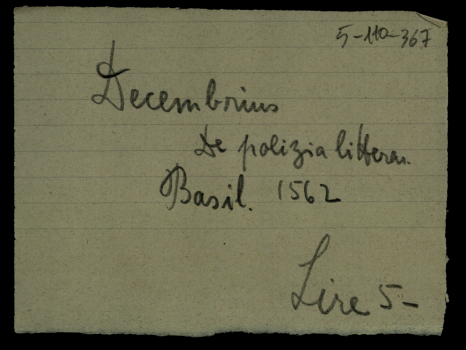 5-110-367
Decembrius
De polizia litterar.
Basil. 1562
Lire 5-